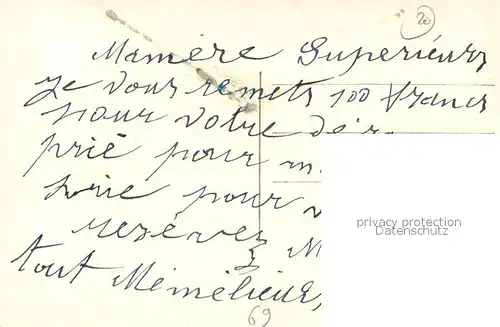 20
Mamère Superieure
je vous remets 100 francs
pour votre dé
prié pour
pour
reservez
tout
69
privacy protection
Datenschutz